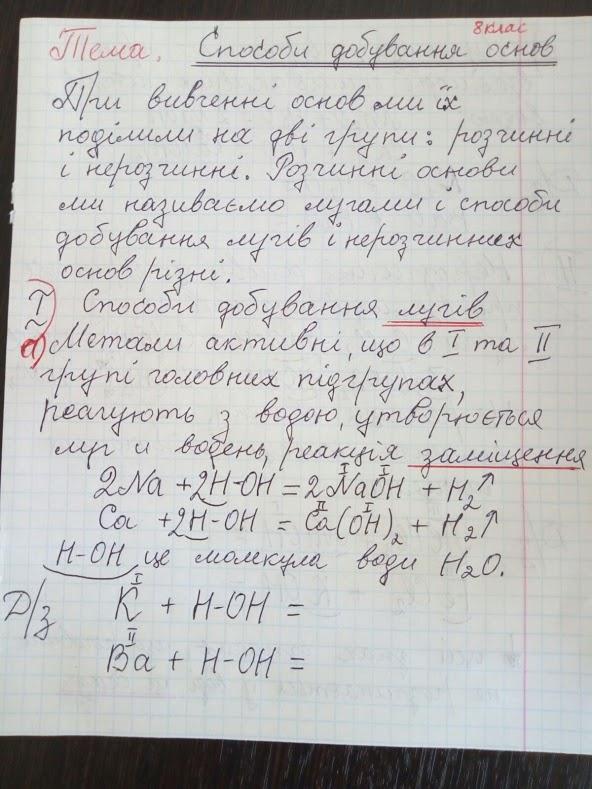 8клас
Тема. Способи добування основ
При вивченні основ ми їх
поділили на дві групи: розчинні
і нерозчинні. Розчинні основи
ми називаємо лугами і способи
добування лугів і нерозчинних
основ різні.
I) Способи добування лугів
а) Метали активні, що в I та II
групі головних підгрупах,
реагують з водою, утворюється
луг и водень, реакція заміщення
I I
2Na + 2H-OH = 2NaOH + H₂↑
II I
Ca + 2H-OH = Ca(OH)₂ + H₂↑
H-OH це молекула води H₂O.
I
Д/з K + H-OH =
II
Ba + H-OH =